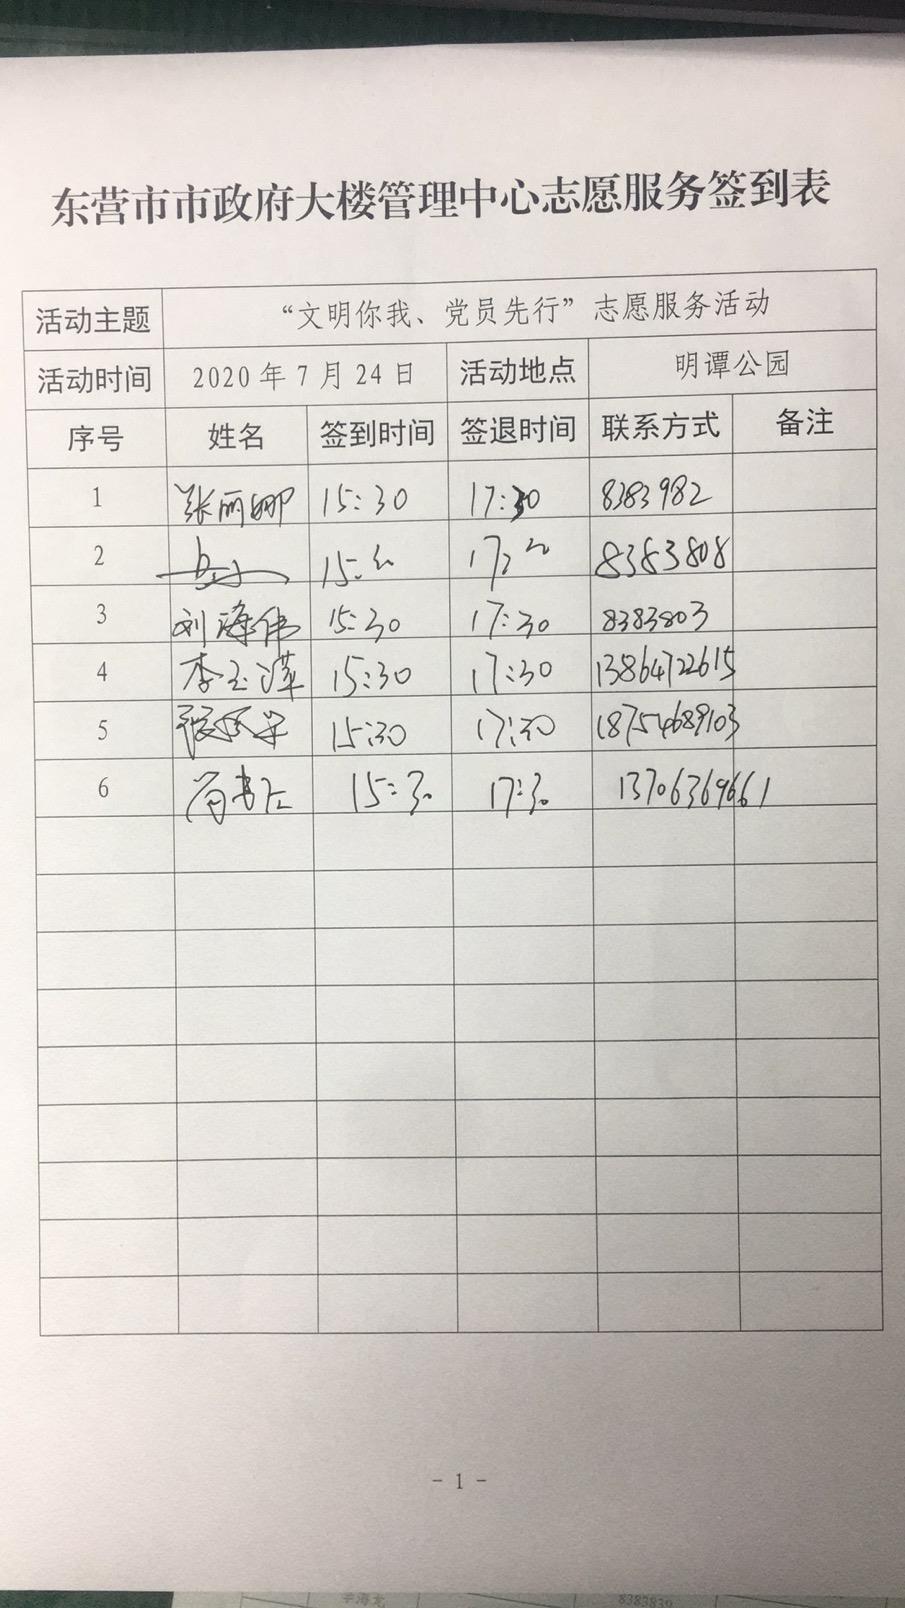 东营市市政府大楼管理中心志愿服务签到表
活动主题 “文明你我、党员先行”志愿服务活动
活动时间 2020年7月24日 活动地点 明谭公园
序号 姓名 签到时间 签退时间 联系方式 备注
1 张丽娜 15:30 17:30 8383982
2 8383808
3 刘海伟 15:30 17:30 8383803
4 李玉萍 15:30 17:30 13864722615
5 15:30 17:30 18754689103
6 15:30 17:30 13706369661
- 1 -
李海龙 8383839